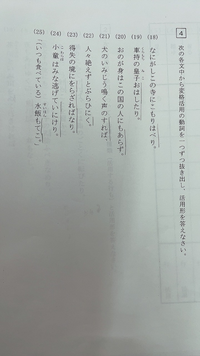 4 次の各文中から変格活用の動詞を一つずつ抜き出し、活用形を答えなさい。
(18) なにがしこの寺にこもりはべり。
(19) 車持の皇子おはしたり。
(20) おのが身はこの国の人にもあらず。
(21) 犬のいみじう鳴く声のすれば、
(22) 人々絶えずとぶらひにく。
(23) 得失の境にをらざればなり。
(24) 小童はみな逃げていにけり。
(25) 「いつも食べている」水飯もてこ。